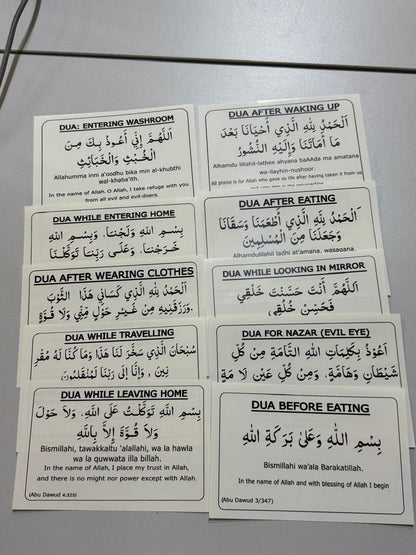 DUA: ENTERING WASHROOM
اَللَّهُمَّ إِنِّي أَعُوذُ بِكَ مِنَ
الْخُبْثِ وَالْخَبَائِثِ
Allahumma inni a'oodhu bika min al-khubthi
wal-khaba'ith.
In the name of Allah. O Allah, I take refuge with you
from all evil and evil-doers.
DUA WHILE ENTERING HOME
بِسْمِ اللهِ وَلَجْنَا، وَبِسْمِ اللهِ
خَرَجْنَا، وَعَلَى رَبِّنَا تَوَكَّلْنَا
DUA AFTER WEARING CLOTHES
اَلْحَمْدُ لِلّٰهِ الَّذِي كَسَانِي هَذَا الثَّوْبَ
وَرَزَقَنِيهِ مِنْ غَيْرِ حَوْلٍ مِنِّي وَلَا قُوَّةٍ
DUA WHILE TRAVELLING
سُبْحَانَ الَّذِي سَخَّرَ لَنَا هَذَا وَمَا كُنَّا لَهُ مُقْرِ
نِينَ , وَإِنَّا إِلَى رَبِّنَا لَمُنْقَلِبُونَ
DUA WHILE LEAVING HOME
بِسْمِ اللهِ تَوَكَّلْتُ عَلَى اللهِ، وَلَا حَوْلَ
وَلَا قُوَّةَ إِلاَّ بِاللهِ
Bismillahi, tawakkaltu 'alallahi, wa la hawla
wa la quwwata illa billah.
In the name of Allah, I place my trust in Allah,
and there is no might nor power except with Allah.
(Abu Dawud 4:325)
DUA AFTER WAKING UP
اَلْحَمْدُ لِلّٰهِ الَّذِي أَحْيَانَا بَعْدَ
مَا أَمَاتَنَا وَإِلَيْهِ النُّشُورُ
Alhamdu lillahil-lathee ahyana baAAda ma amatana
wa-ilayhin-nushoor.
All praise is for Allah who gave us life after having taken it from us
DUA AFTER EATING
اَلْحَمْدُ لِلّٰهِ الَّذِي أَطْعَمَنَا وَسَقَانَا
وَجَعَلَنَا مِنَ الْمُسْلِمِينَ
Alhamdulilahil ladhi at'amana, wasaqana,
DUA WHILE LOOKING IN MIRROR
اَللَّهُمَّ أَنْتَ حَسَّنْتَ خَلْقِي
فَحَسِّنْ خُلُقِي
DUA FOR NAZAR (EVIL EYE)
اَعُوْذُ بِكَلِمَاتِ اللهِ التَّامَّةِ مِنْ كُلِّ
شَيْطَانٍ وَهَامَّةٍ، وَمِنْ كُلِّ عَيْنٍ لَا مَّةٍ
DUA BEFORE EATING
بِسْمِ اللهِ وَعَلَىٰ بَرَكَةِ اللهِ
Bismillahi wa'ala Barakatillah.
In the name of Allah and with blessing of Allah I begin
(Abu Dawud 3/347)